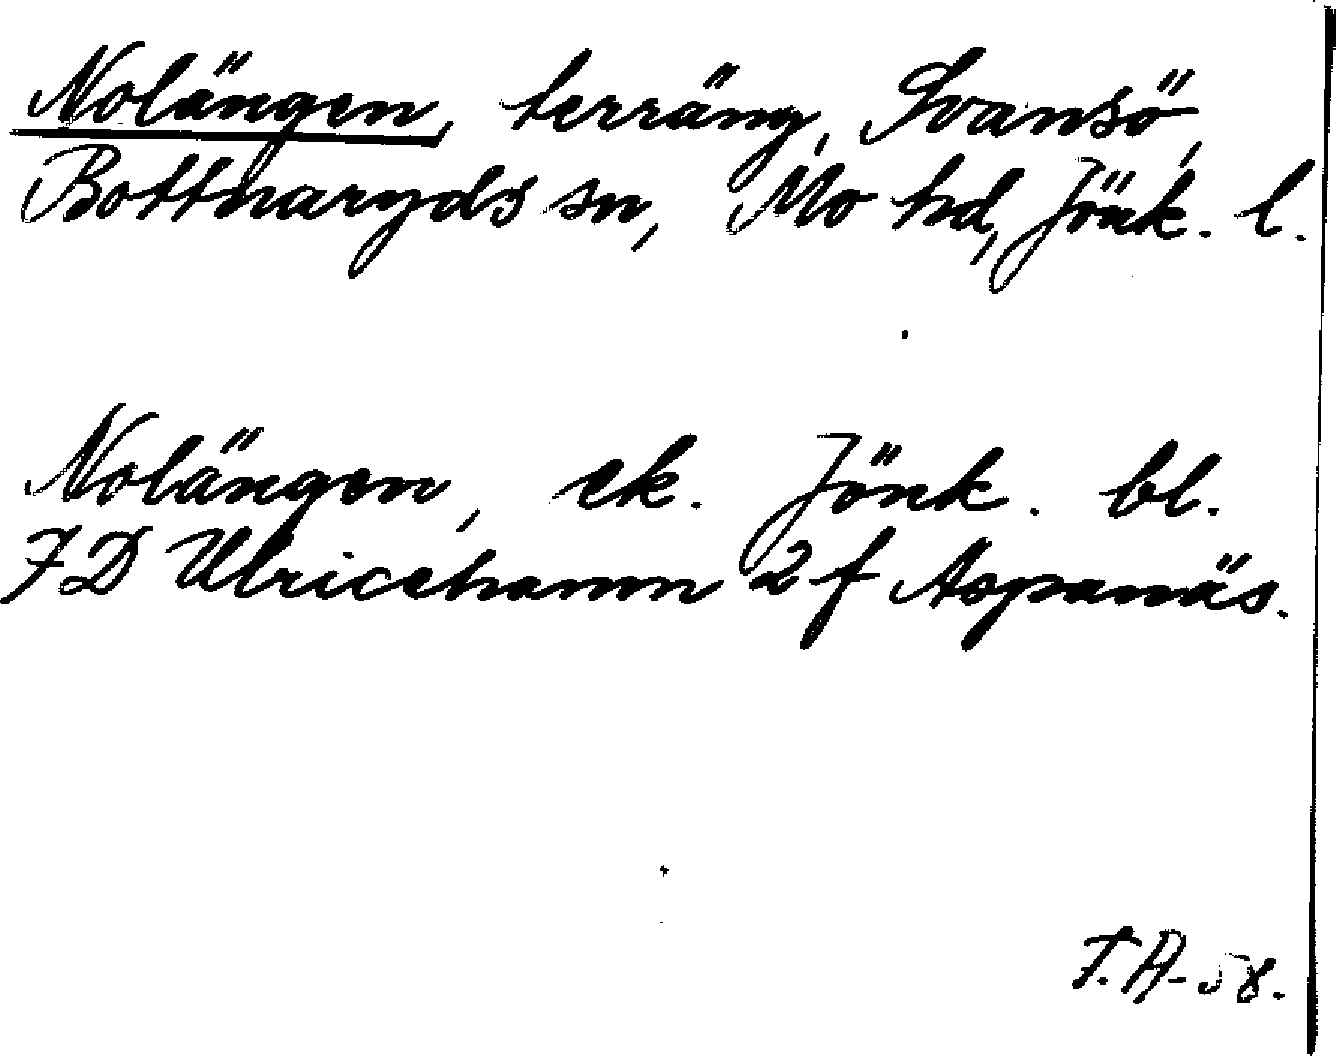 Nolängen, terräng, Svansö,
Bottnaryds sn, Mo hd, Jönk. l.
Nolängen, ek. Jönk. bl.
7D Ulricehamn 2 f Aspanäs.
F.A-58.